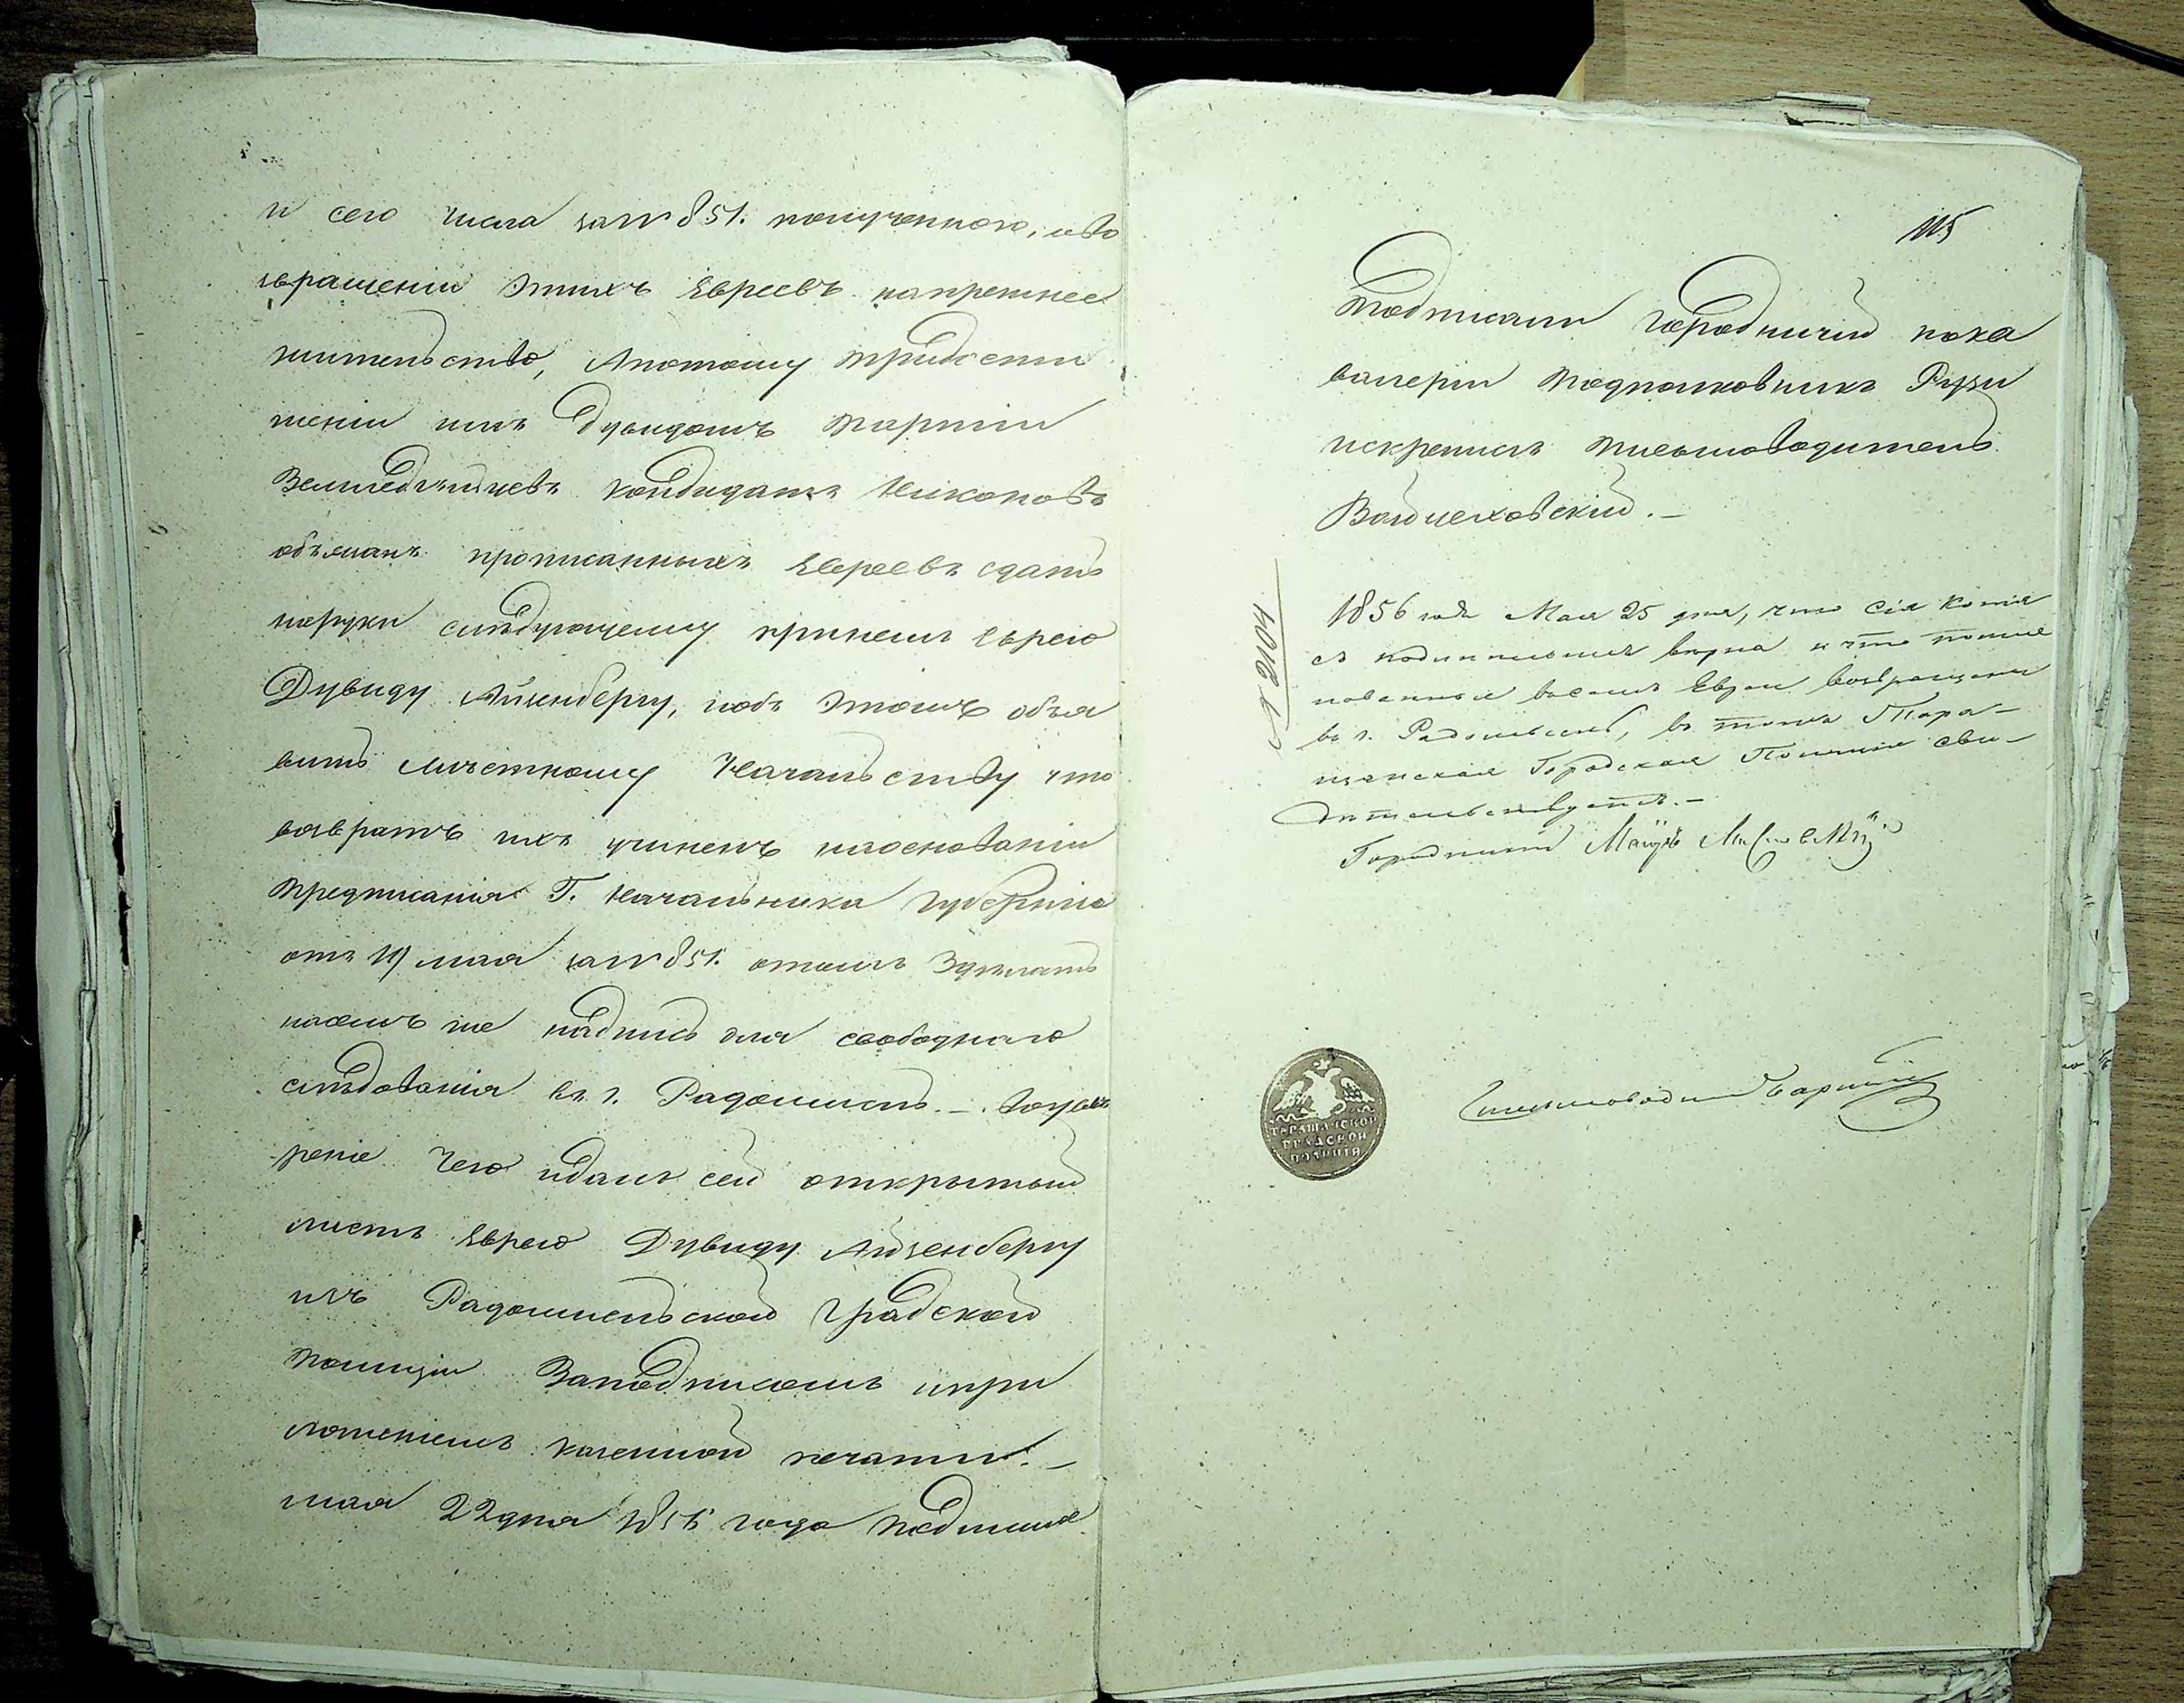 и сего числа за № 851. полученного, о во
звращеніи этихъ Евреевъ на прежнее
жительство, А потому при
женіи имъ Дувидомъ партіи
кандидатъ
прописанныхъ Евреевъ сдать
на руки слѣдующему при немъ Еврею
Дувиду Айзенбергу, и объ этомъ объя
вить мѣстному Начальству что
возвратъ ихъ учиненъ на основаніи
предписанія Г. Начальника Губерніи
отъ 19 мая за № 851. о томъ Здѣлать
на семъ же надпись для свободнаго
слѣдованія въ г. Радомысль. – Во увѣ
реніе чего и данъ сей открытый
листъ Еврею Дувиду Айзенбергу
изъ Радомысльской Градской
полиціи За подписомъ и при
ложеніемъ казенной печати. –
мая 22 дня 1856 года Подлинное
115
Подписали Городничій по ка
валеріи Подполковникъ
и скрепилъ Письмоводитель
Войцеховскій. –
№ 2104
1856 года Мая 25 дня, что сія Копія
съ подлиннымъ вѣрна и что поиме
нованные въ семъ Евреи возвращены
въ г. Радомысль, въ томъ Тара–
щанская Городская Полиція сви–
дѣтельствуетъ. –
Городничій Маіоръ
ТАРАЩАНСКОЙ
ГРАДСКОЙ
ПОЛИЦІИ
Письмоводитель